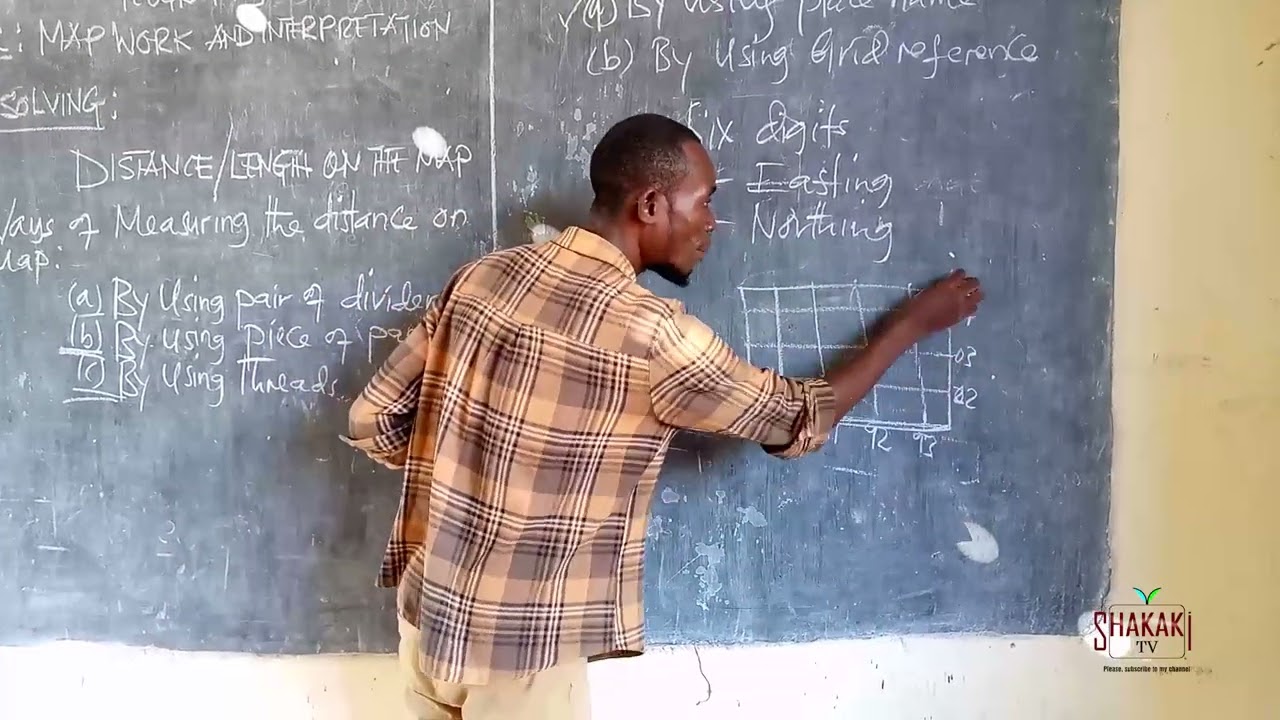 : MAP WORK AND INTERPRETATION
SOLVING:
DISTANCE/LENGTH ON THE MAP
Ways of Measuring the distance on
Map:
(a) By Using pair of divider
(b) By Using piece of pa
(c) By Using Threads..
(a) By Using place name
(b) By Using Grid reference
Six digits
- Easting
- Northing
03
02
92 93
SHAKAKi
TV
Please, subscribe to my channel